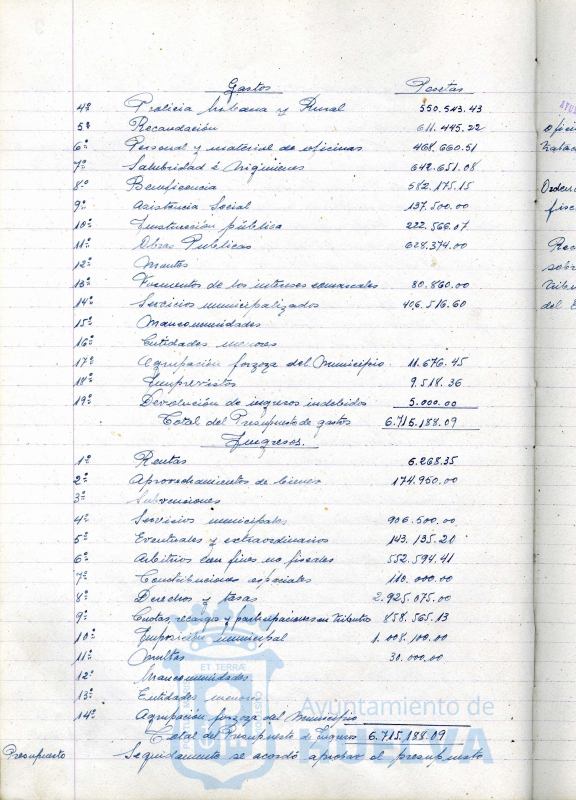 Gastos Pesetas
4º Policia Urbana y Rural 550.543.43
5º Recaudación 611.445.22
6º Personal y material de oficinas 468.660.51
7º Salubridad é Higiene 642.651.08
8º Beneficencia 582.175.15
9º Asistencia Social 137.500.00
10º Instrucción pública 222.566.07
11º Obras Publicas 628.374.00
12º Montes
13º Fomentos de los intereses comarcales 80.860.00
14º Servicios municipalizados 406.516.60
15º Mancomunidades
16º Entidades menores
17º Agrupación forzoza del Municipio 11.676.45
18º Imprevistos 9.518.36
19º Devolución de ingresos indebidos 5.000.00
Total del Presupuesto de gastos 6.715.188.09
Ingresos.
1º Rentas 6.268.35
2º Aprovechamientos de bienes 174.950.00
3º Subvenciones
4º Servicios municipales 906.500.00
5º Eventuales y extraordinarios 143.135.20
6º Arbitrios con fines no fiscales 552.594.41
7º Contribuciones especiales 110.000.00
8º Derechos y tasas 2.925.075.00
9º Cuotas, recargos y participaciones en tributos 858.565.13
10º Imposición municipal 1.008.100.00
11º Multas 30.000.00
12º Mancomunidades
13º Entidades menores
14º Agrupación forzoza del Municipio
Total del Presupuesto de Ingresos 6.715.188.09
Presupuesto Seguidamente se acordó aprobar el presupuesto
ET TERRÆ
Ayuntamiento de
HUELVA